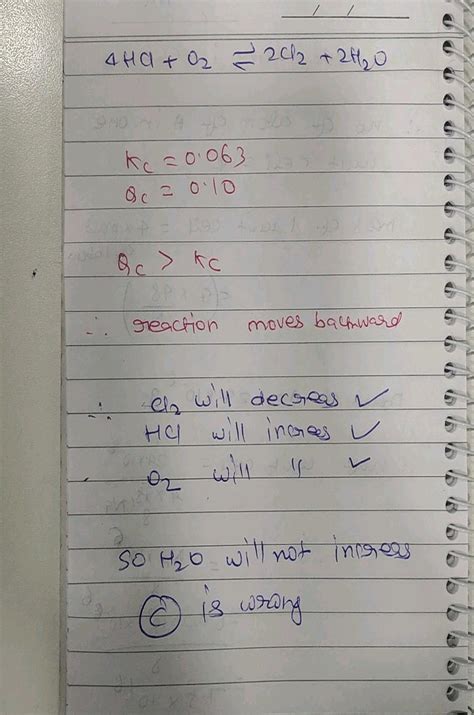 4HCl + O2 ⇌ 2Cl2 + 2H2O
Kc = 0.063
Qc = 0.10
Qc > Kc
∴ reaction moves backward
∴ Cl2 will decreas ✓
HCl will increas ✓
O2 will " ✓
SO H2O will not increas
(C) is wrong